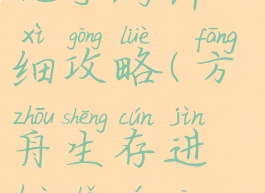 xì gōng lüè fāng
细攻略(方
zhōu shēng cún jìn
舟生存进